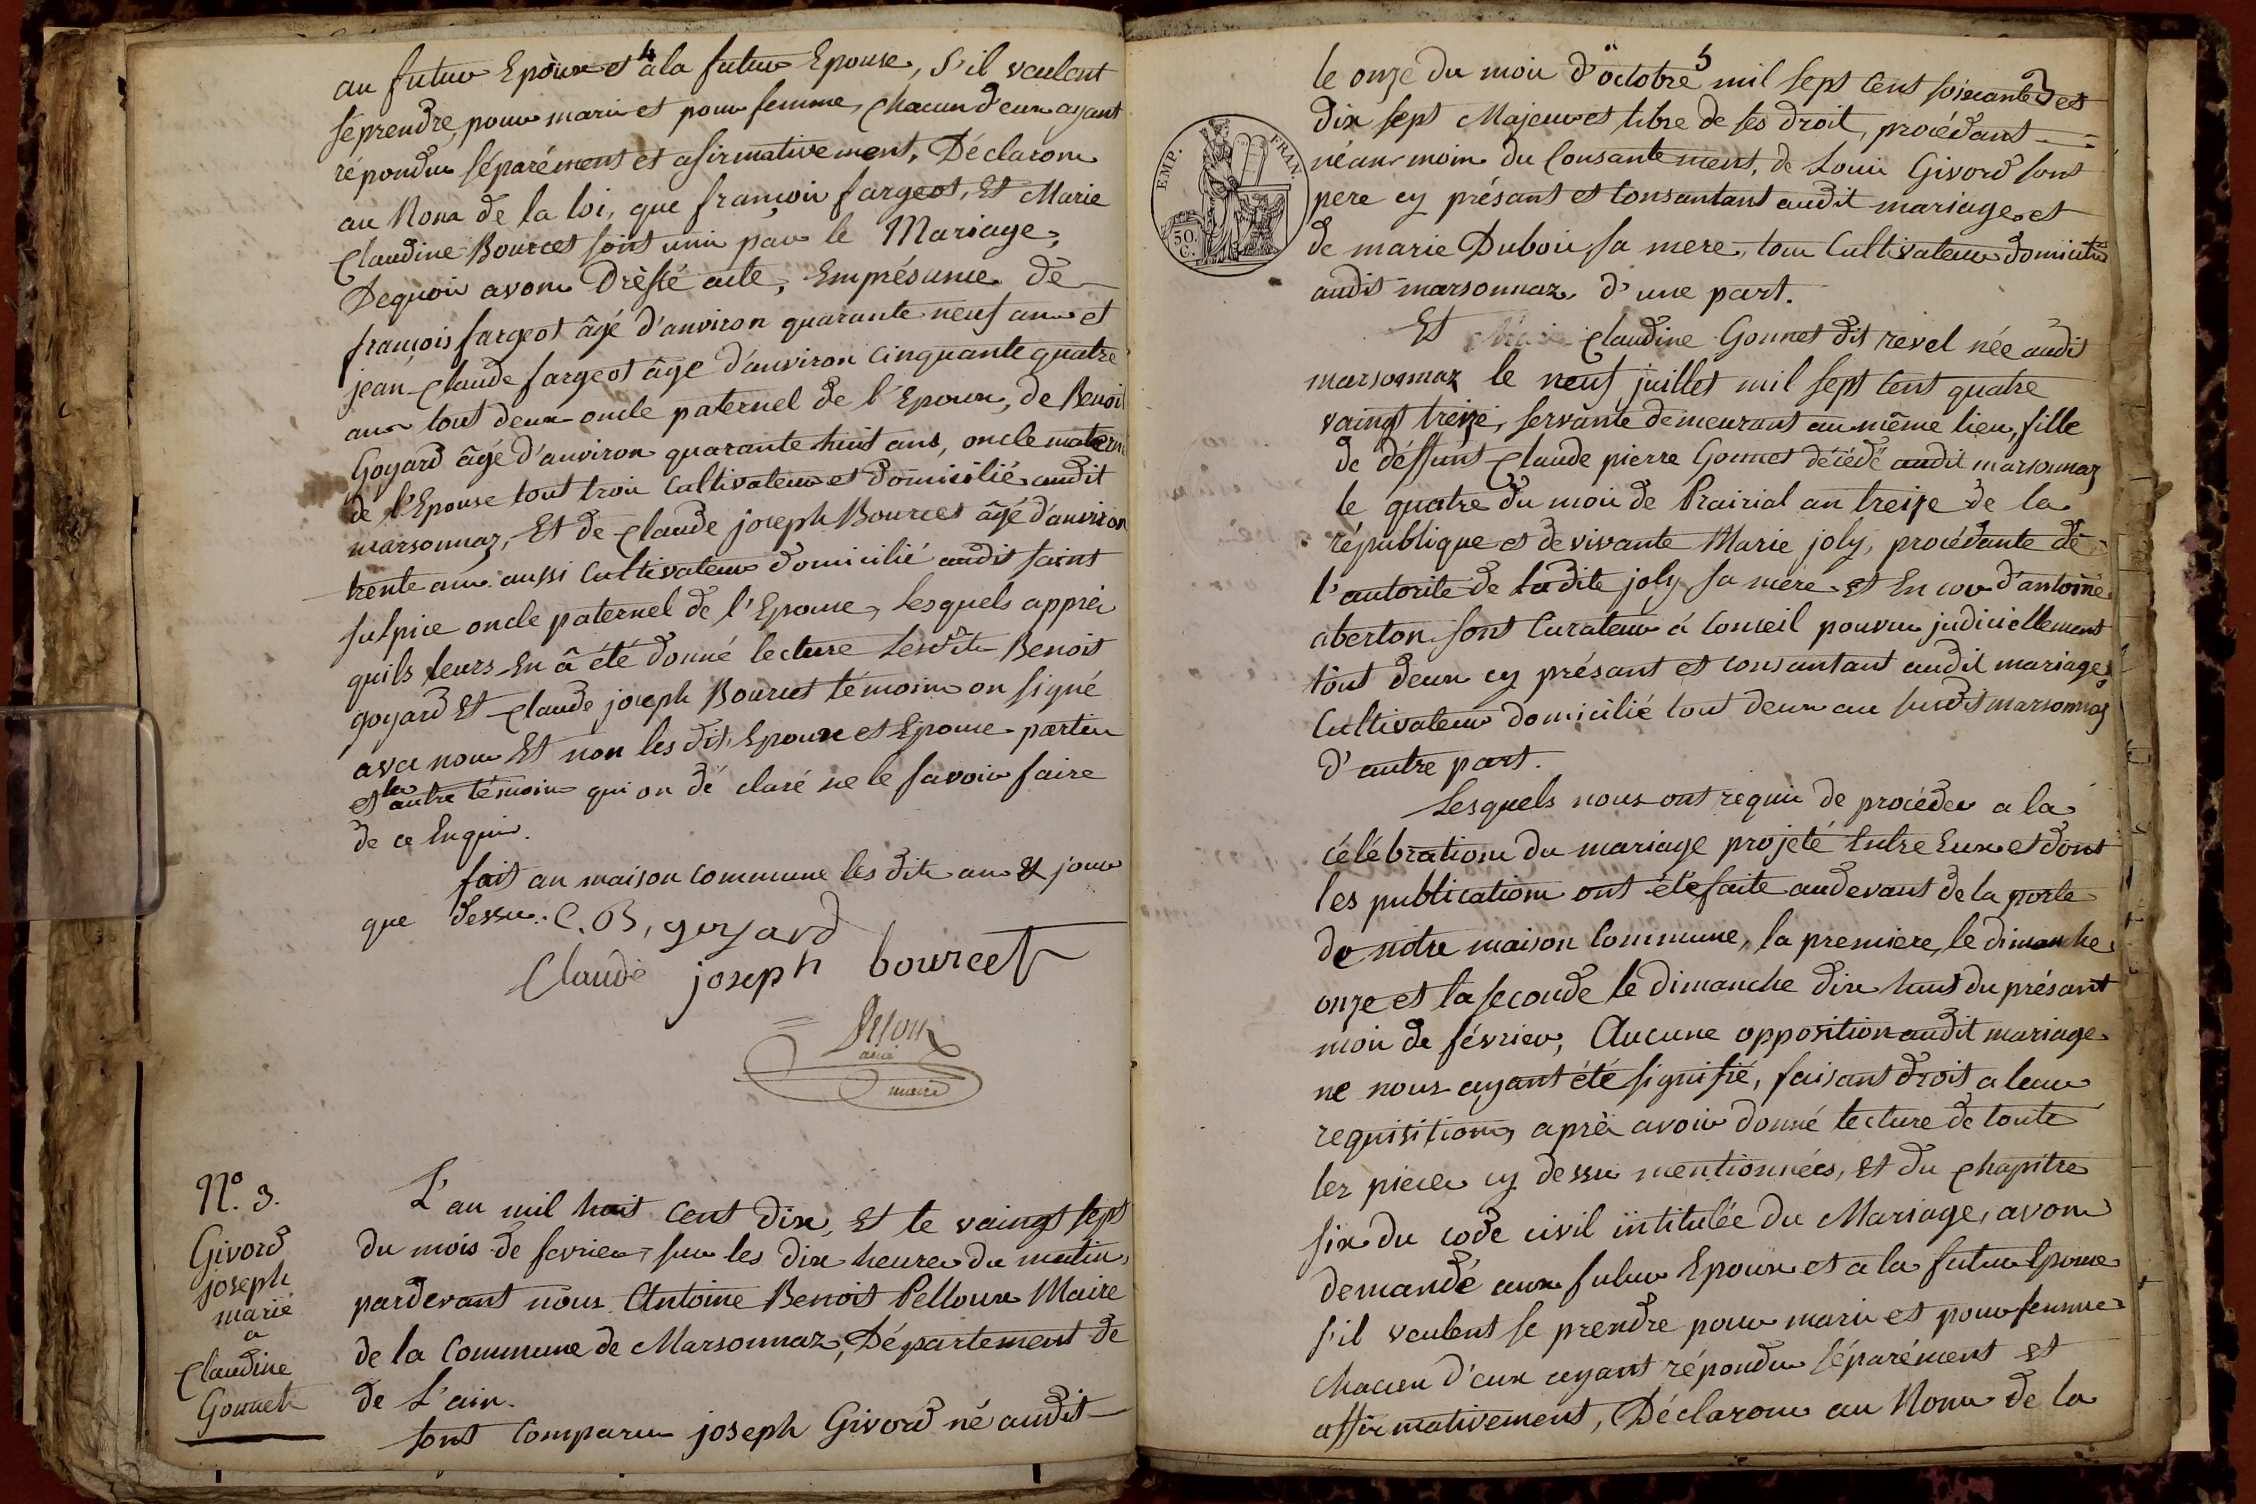 4
au futur Epoux et a la futur Epouse, s'il veulent
se prendre, pour mari et pour femme, chacun d'eux ayant
répondu séparément et afirmativement, Déclarons
au Nom de la loi, que françois fargeot, Et Marie
Claudine Bourcet sont unis par le Mariage,
Dequoi avons Drêssé acte, En présence de
françois fargeot âgé d'anviron quarante neuf ans et
jean Claude fargeot âgé d'anviron cinquante quatre
ans tout deux oncle paternel de l'Epoux, de Benoit
Goyard âgé d'anviron quarante huit ans, oncle matern
de l'Epouse tout trois Cultivateur et domicilié audit
marsonnaz, Et de Claude joseph Bourcet âgé d'anviron
trente ans aussi Cultivateur domicilié audit saint
sulpice oncle paternel de l'Epouse, Lesquels apprès
quils leurs En â été donné lecture Lesdits Benoit
goyard Et Claude joseph Bourcet témoins on signé
avec nous Et non les dits Epoux et Epouse parties
et les autre témoins qui on dé claré ne le savoir faire
de ce Enquis.
fait an maison commune les dits an & jour
que dessus. C. B, goyard
Claude joseph bourcet
maire
N.º 3.
Givord
joseph
marié
a
Claudine
Gonnet
L'an mil huit cent dix, Et le vaingt sept
du mois de fevrier, sur les dix heures du matin,
pardevant nous Antoine Benoit Pelloux Maire
de la Commune de Marsonnaz, Département de
de L'ain.
sont Comparus joseph Givord né audit
5
EMP. FRAN.
50.
C.
le onze du mois d'octobre mil sept cent soixante et
dix sept Majeur et libre de ses droit, procédant
néan-moins du Consantement, de Louis Givord sont
pere cy présant et consantant audit mariage et
de marie Dubois sa mere, tous Cultivateur domicilié
audit marsonnaz d'une part.
Et Claudine Gonnet dit revel née audit
marsonnaz le neuf juillet mil sept cent quatre
vaingt treize, servante demeurant au même lieu, fille
de déffunt Claude pierre Gonnet décédé audit marsonnaz
le quatre du mois de Prairial an treize de la
république et de vivante Marie joly, procédante de
l'autorite de ladite joly sa mère Et En cor d'antoine
aberton sont Curateur â Conseil pourvu judiciellement
tout deux cy présant et consantant audit mariage
Cultivateur domicilié tout deux au susdit marsonnaz
d'autre part.
Lesquels nous ont requis de procéder a la
célébrations du mariage projeté Entre Eux et dont
les publications ont été faite audevant de la porte
de notre maison Commune, la premiere, le dimanche
onze et la seconde le dimanche dix huit du présant
mois de février, Aucune opposition audit mariage
ne nous ayant été signifié, faisant droit a leur
requisitions, après avoir donné lecture de toute
les pieces cy dessus mentionnées, Et du chapitre
six du code civil intitulée du Mariage, avons
demandé aux futur Epoux et a la futur Epouse
s'il veulent se prendre pour mari et pour femme
chacun d'eux ayant répondu séparément Et
affirmativement, Déclarons au Nom de la